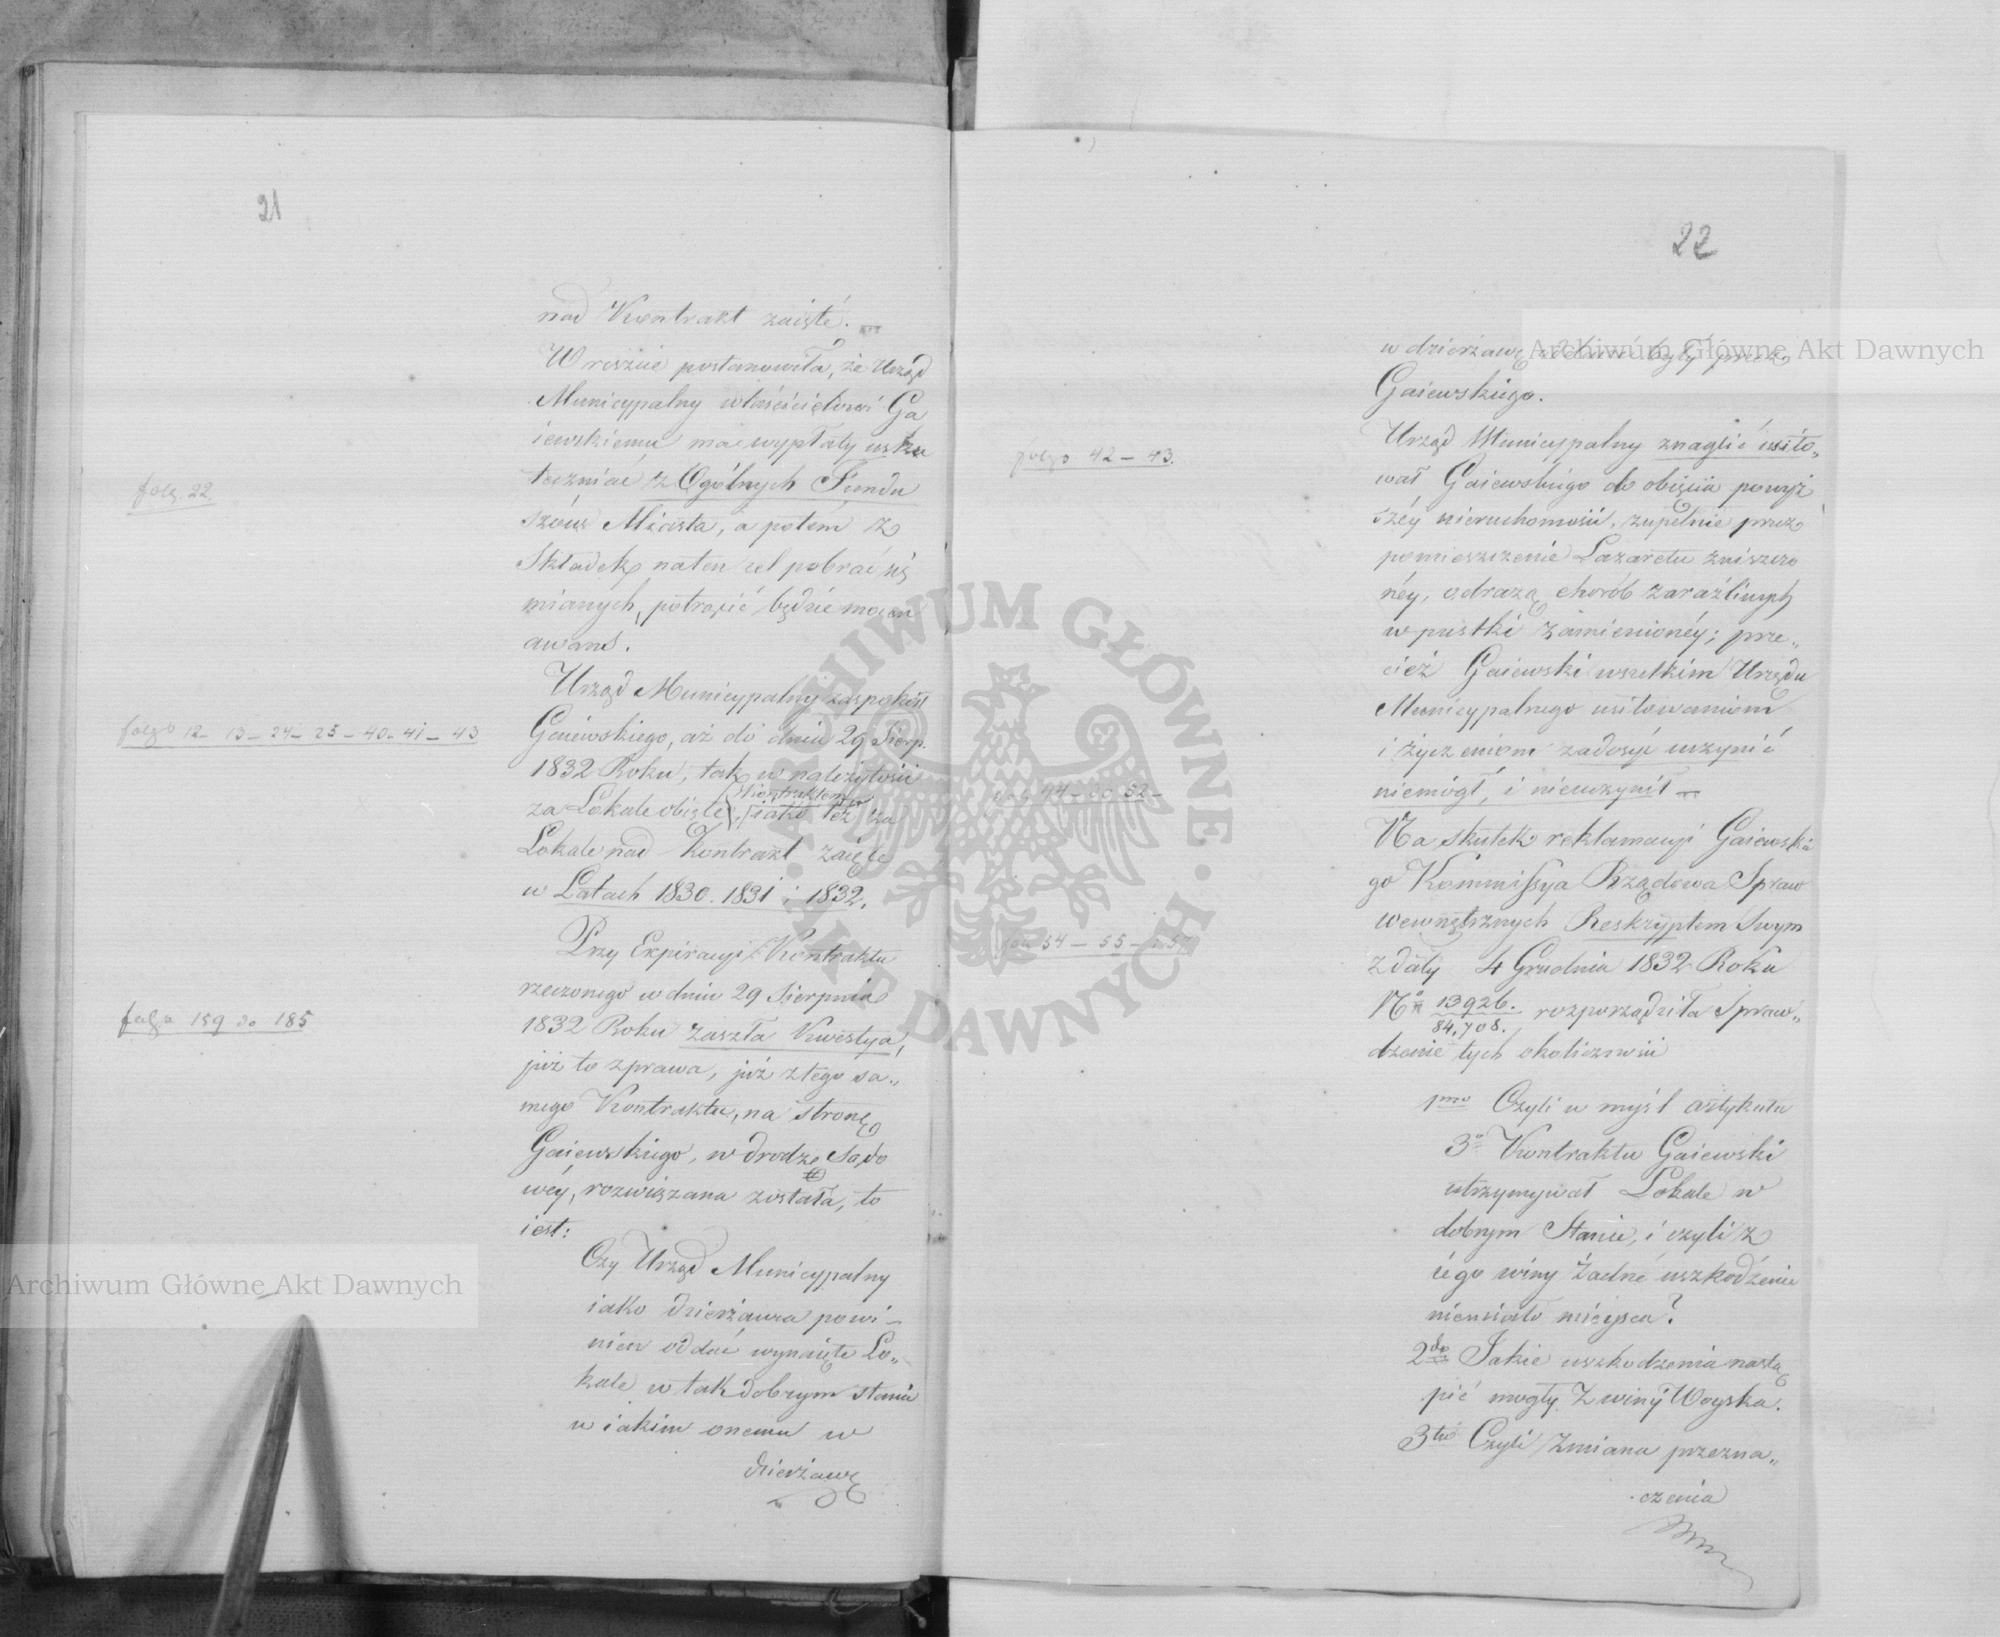 21
nad Kontrakt zaięté.
W reszcie postanowiła, że Urząd
Municypalny właścicielowi Ga
iewskiemu ma wypłaty usku
teczniać z Ogólnych Fundu
szów Miasta, a potem z
Składek na ten cel pobrać się
mianych, potrącić będzie mocen
awans.
folg. 22.
Urząd Municypalny zaspokoił
Gaiewskiego, aż do dnia 29 Sierp.
1832 Roku, tak w należytości
za Lokale obięte Kontraktem, iako też za
Lokale nad Kontrakt zaięte
w Latach 1830. 1831 i 1832.
folgo 12 - 13 - 24 - 25 - 40 - 41 - 43
Przy Expiracyi Kontraktu
rzeczonego w dniu 29 Sierpnia
1832 Roku zaszła Kwestya,
już to z prawa, już z tego sa„
mego Kontraktu, na stronę
Gaiewskiego, w drodze Sądo
wéy, rozwiązana została, to
iest:
folgo 159 do 185
Czy Urząd Municypalny
iako dzierżawca powi-
nien oddać wynaięte Lo„
kale w tak dobrym stanie
w iakim onemu w
dzierżawę
Archiwum Główne Akt Dawnych
22
w dzierżawę oddane były przez
Gaiewskiego.
Urząd Municypalny znaglić usiło„
wał Gaiewskiego do obięcia powyż
széy nieruchomości, zupełnie przez
pomieszczenie Lazaretu zniszczo
néy, odrazą chorób zaraźliwych
w pustki zamienionéy; prze„
cież Gaiewski wszelkim Urzędu
Municypalnego usiłowaniom
i życzeniom zadosyć uczynić
niemógł, i nieuczynił -
folgo 42 - 43.
Na skutek reklamacyi Gaiewskie
go Kommissya Rządowa Spraw
wewnętrznych Reskryptem Swym
z daty 4 Grudnia 1832 Roku
No 13926./84,708. rozporządziła Spraw„
dzenie tych okoliczności
44 - do 52 -
54 - 55 - 57
1mo Czyli w myśl artykułu
3o Kontraktu Gaiewski
utrzymywał Lokale w
dobrym Stanie, i czyli z
iégo winy żadne uszkodzenie
niemiało mieysca?
2do Jakie uszkodzenia nastą
pić mogły z winy Woyska.
3tio Czyli zmiana przezna„
czenia
Archiwum Główne Akt Dawnych
ARCHIWUM GŁÓWNE • AKT DAWNYCH •